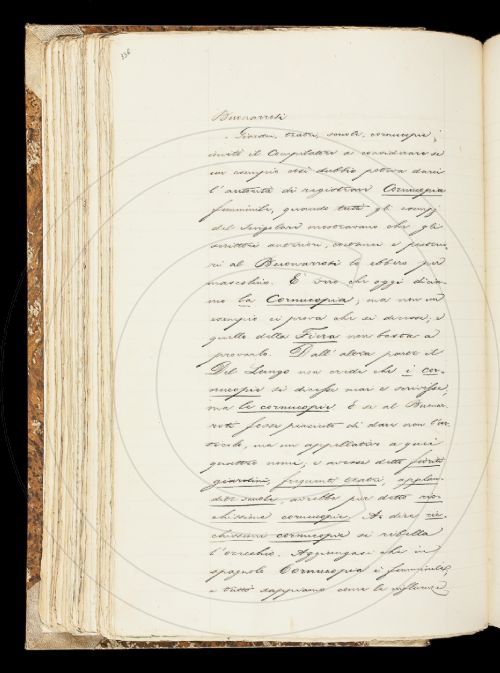 336
Buonarroti
"Giardini, teatri, scuole, cornucopie",
invitò il Compilatore a considerare se
un esempio così dubbio poteva darci
l'autorità di registrare Cornucopia
femminile, quando tutti gli esempj
del Singolare mostravano che gli
scrittori anteriori, coetanei e posterio-
ri al Buonarroti lo ebbero per
maschile. È vero che oggi dicia-
mo la Cornucopia, ma non un
esempio ci prova che si dicesse; e
quello della Fiera non basta a
provarlo. Dall'altra parte il
Del Lungo non crede che i cor-
nucopie si dicesse mai e scrivesse,
ma le cornucopie. E se al Buonar-
roti fosse piaciuto di dare non l'ar-
ticolo, ma un appellativo a quei
quattro nomi, e avesse detto fioriti
giardini, frequenti teatri, applau-
dite scuole, avrebbe pur detto ric-
chissime cornucopie. A dire ric-
chissimi cornucopie si ribella
l'orecchio. Aggiungasi che in
spagnolo Cornucopia è femminile,
e tutti sappiamo come le influenze